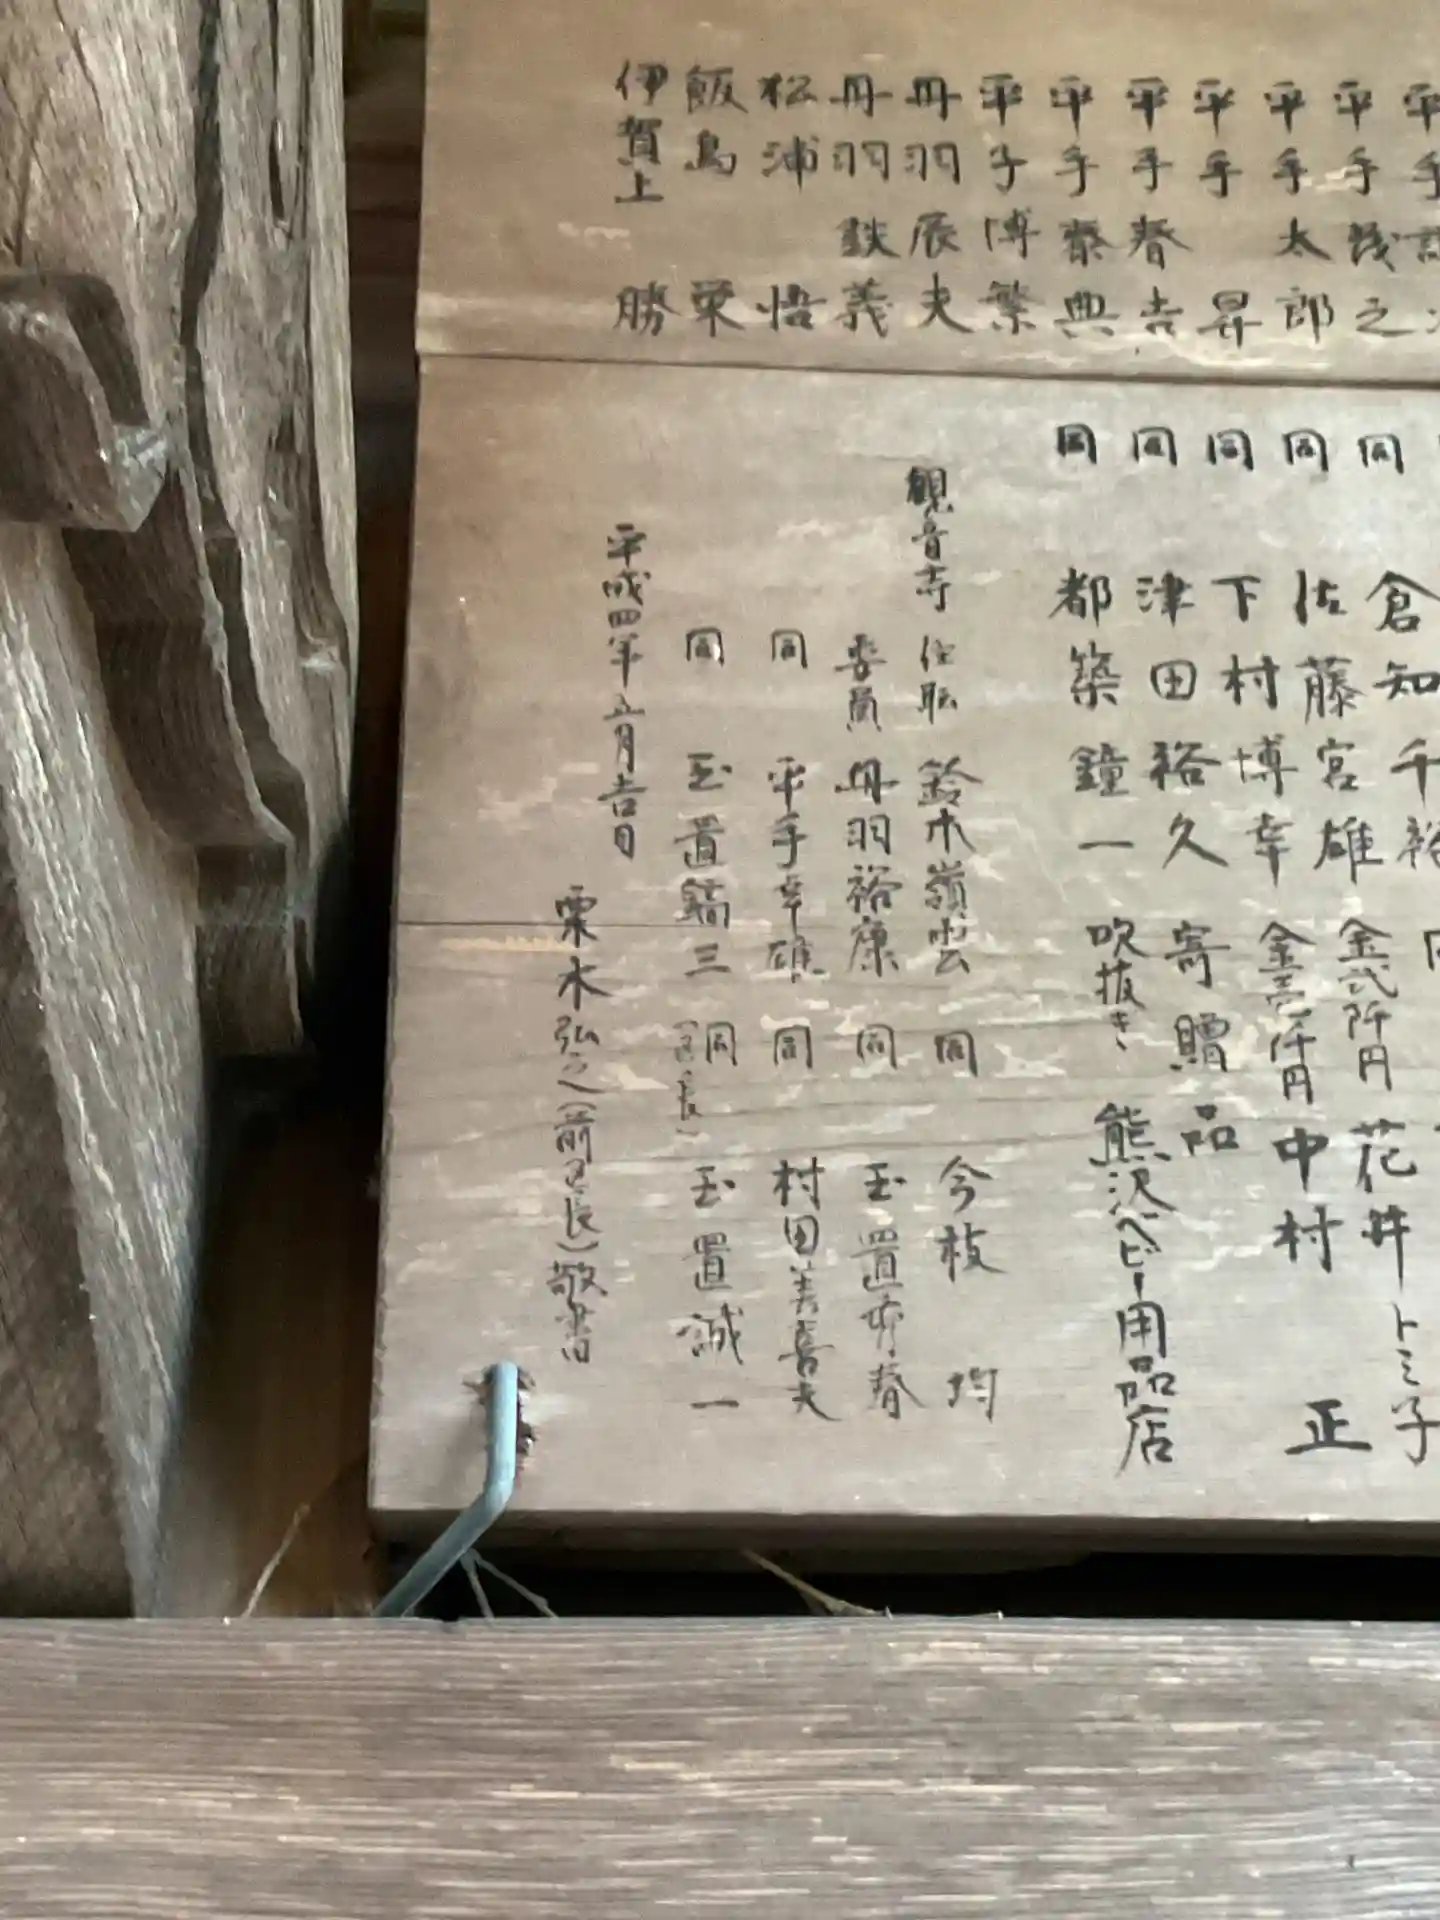 平手
平手茂之
平手太郎
平手昇
平手春吉
平手泰典
平手博繁
丹羽辰夫
丹羽鉄義
松浦悟
飯島栄
伊賀上勝
同 倉知千裕
同 佐藤宮雄
同 下村博幸
同 津田裕久
同 都築鐘一
金弐阡円 花井トミ子
金壱仟円 中村正
寄贈品
吹抜き 熊沢ベビー用品店
観音寺 住職 鈴木嶺雲 同 今枝均
委員 丹羽裕康 同 玉置春
同 平手幸雄 同 村田美喜夫
同 玉置鎬三 同(区長) 玉置誠一
平成四年五月吉日
栗木弘之(前区長)敬書